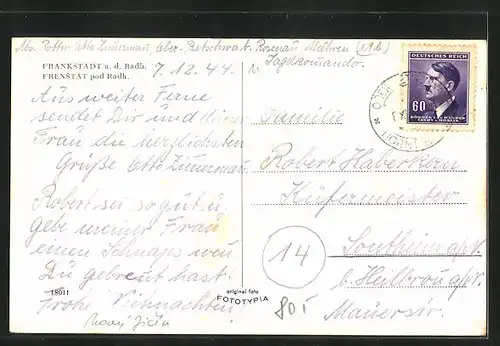 Abs. Rottw. Otto Zimmerman, Ober-Betschwa b. Rosnau Mähren
Jagdkomando.
FRANKSTADT u. d. Radh. 7.12.44.
FRENŠTÁT pod Radh.
Aus weiter Ferne
sendet Dir und deiner
Frau die herzlichsten
Grüße Otto Zimmerman.
Robert sei so gut u.
gebe meiner Frau
einen Schnaps wen
Du gebrent hast.
Frohe Weihnachten!
18011
Nový Jičín
original foto
FOTOTYPIA
80
14
DEUTSCHES REICH
60
BÖHMEN UND MÄHREN
ČECHY A MORAVA
Familie
Robert Haberkern
Küfermeister
Sontheim a/N.
b. Heilbron a/N.
Mauerstr.